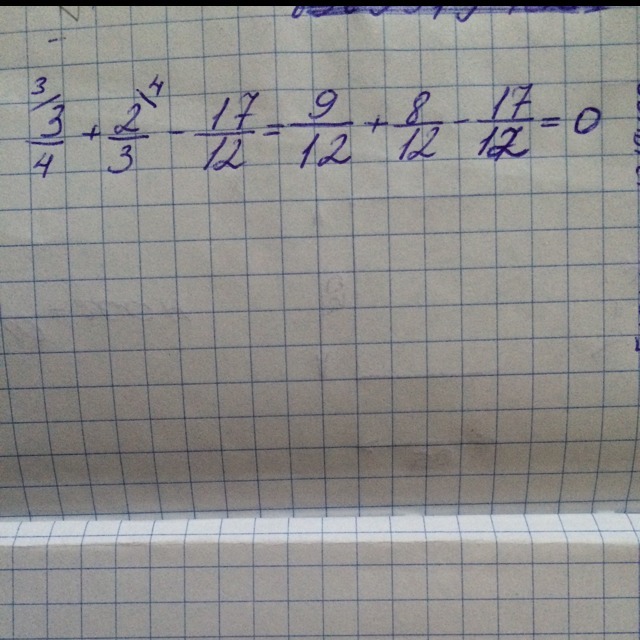 3/ 3/4 + 2/3 \4 - 17/12 = 9/12 + 8/12 - 17/12 = 0